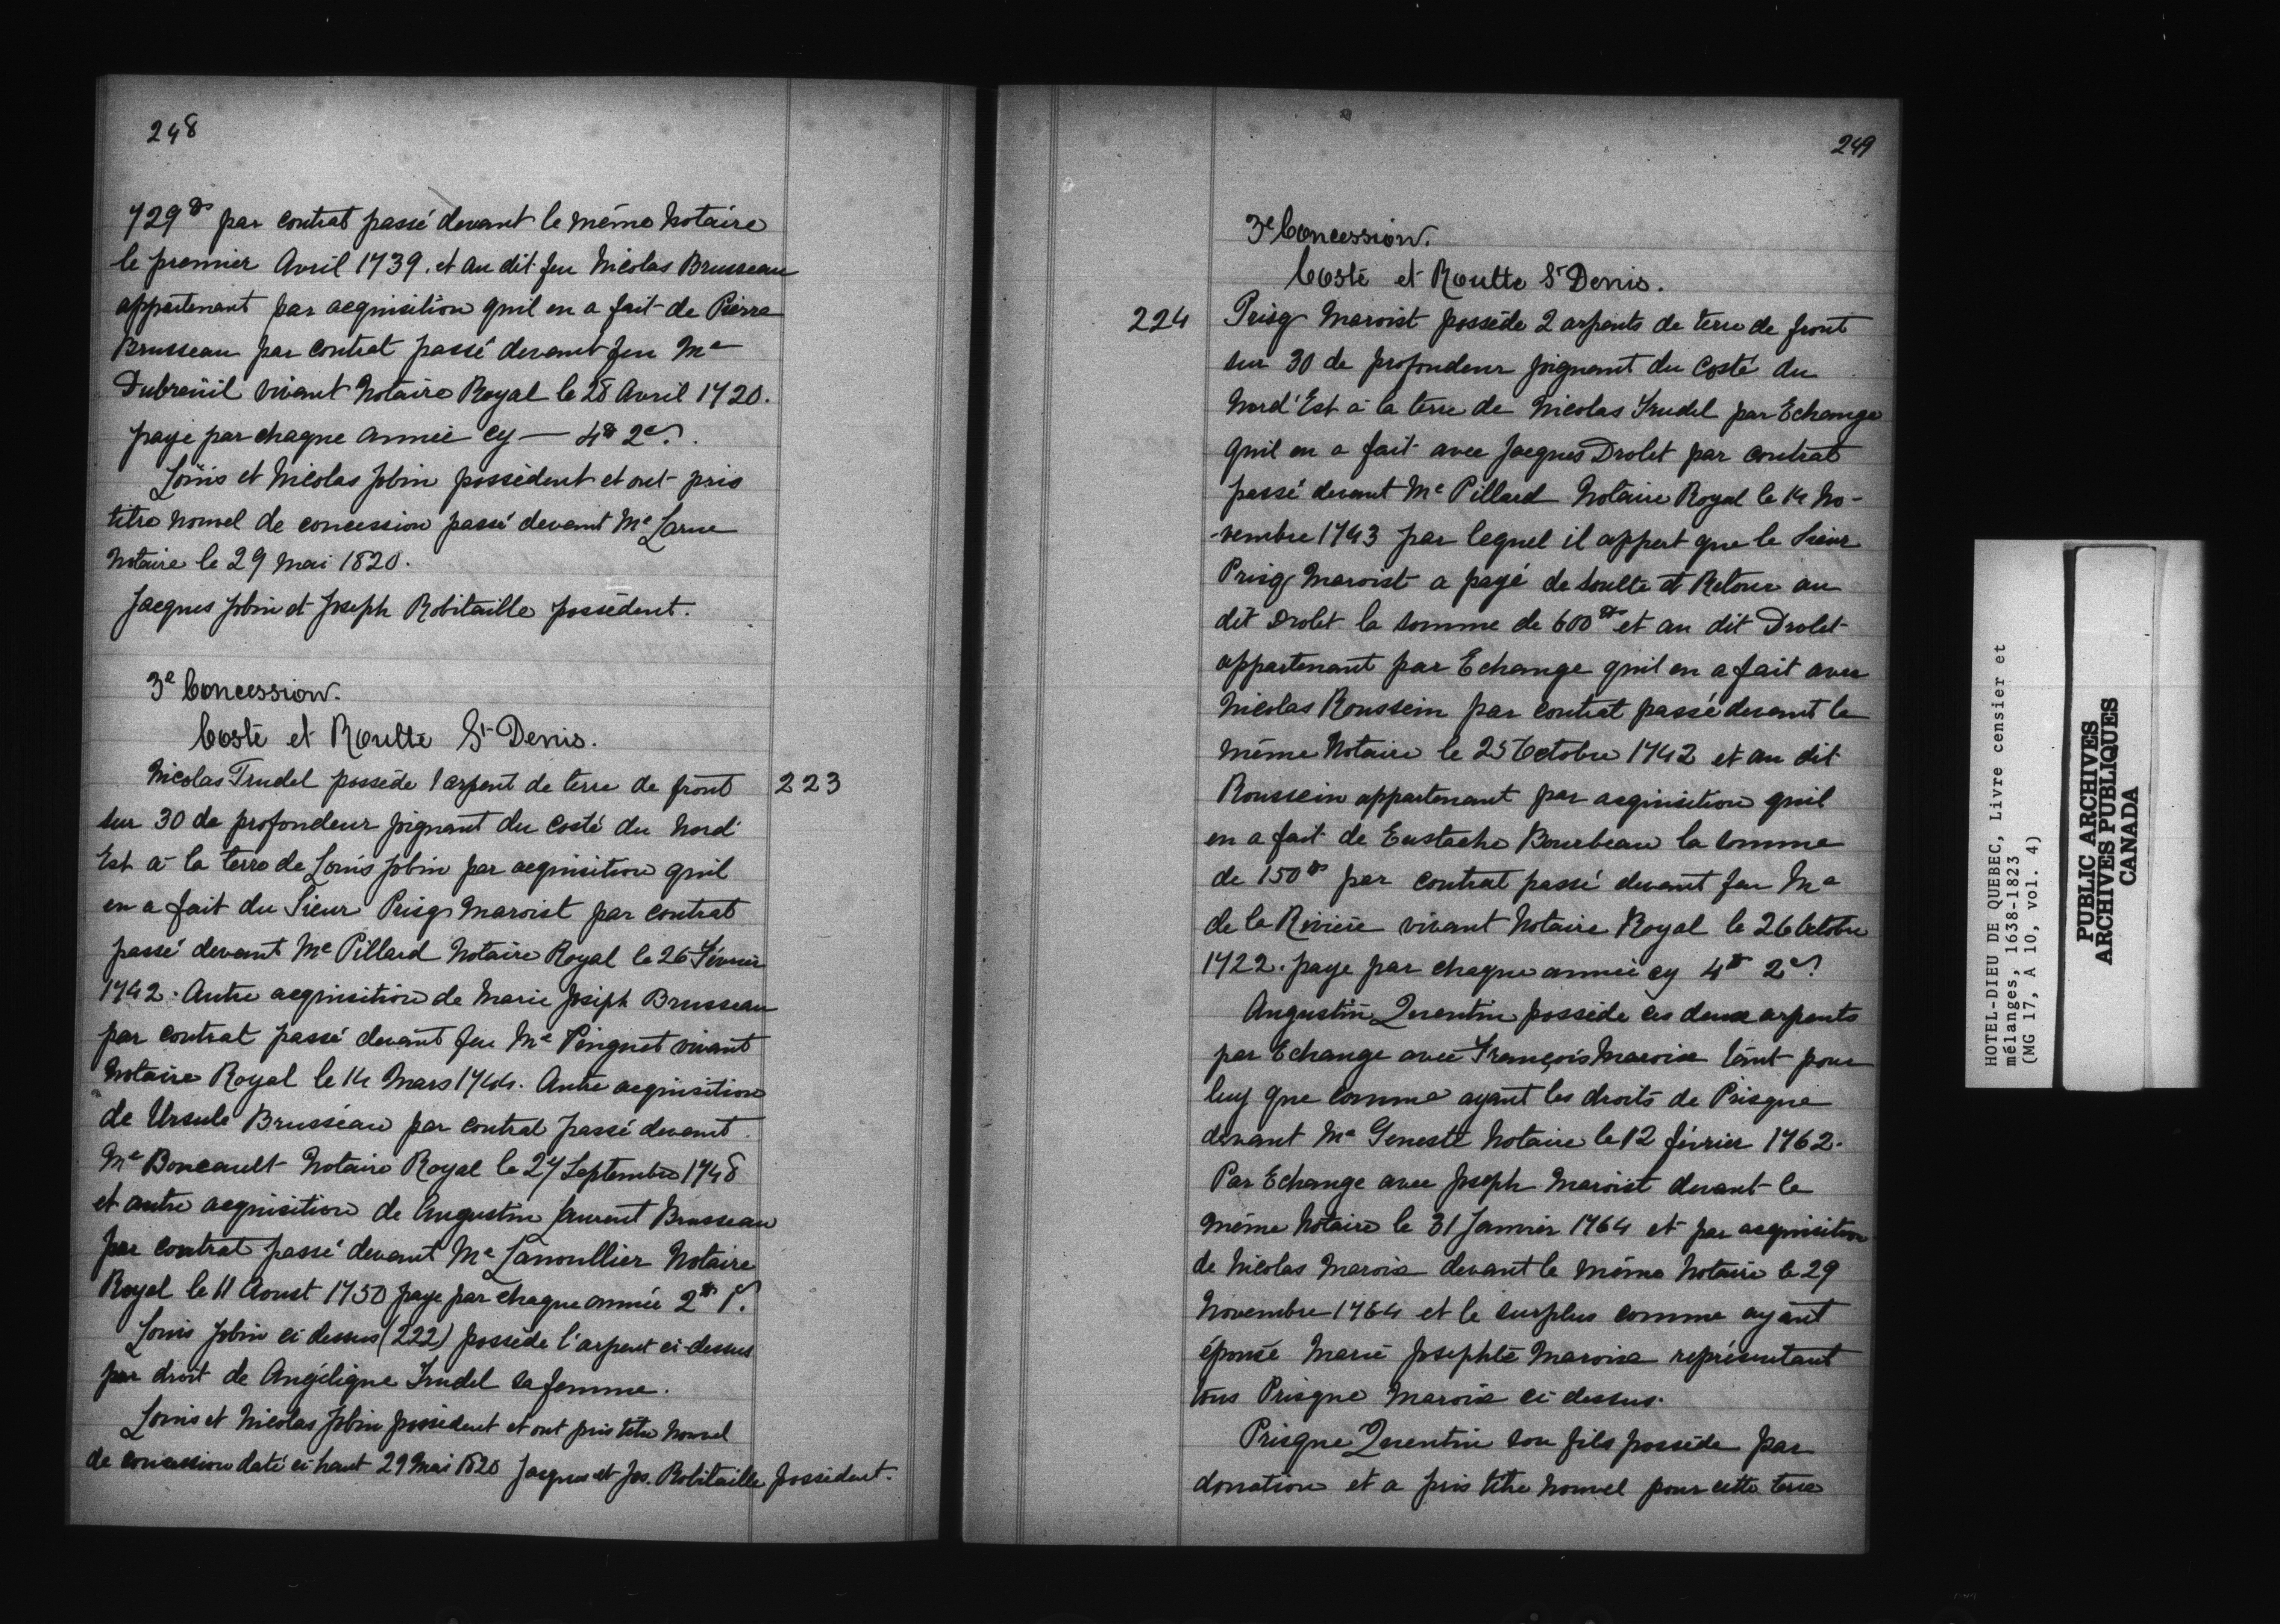 248
729# par contrat passé devant le même Notaire
le premier Avril 1739. et au dit feu Nicolas Brusseau
appartenant par acquisition quil en a fait de Pierre
Brusseau par contrat passé devant feu Me
Dubreüil vivant Notaire Royal le 28 Avril 1720.
paye par chaque année cy — 4# 2s.
Loüis et Nicolas Jobin possèdent et ont pris
titre nouvel de concession passé devant Me Larue
Notaire le 29 Mai 1820.
Jacques Jobin et Joseph Robitaille possèdent.
3e Concession.
Costé et Routte St Denis.
Nicolas Trudel possède 1 arpent de terre de front 223
sur 30 de profondeur joignant du costé du Nord
Est à la terre de Louis Jobin par acquisition quil
en a fait du Sieur Prisq Maroist par contrat
passé devant Me Pillard Notaire Royal le 26 Février
1742. Autre acquisition de Marie Joseph Brusseau
par contrat passé devant feu Me Pinguet vivant
Notaire Royal le 14 Mars 1744. Autre acquisition
de Ursule Brusseau par contrat passé devant
Me Boucault Notaire Royal le 27 Septembre 1748
et autre acquisition de Augustin Laurent Brusseau
par contrat passé devant Me Lanoullier Notaire
Royal le 11 Aoust 1750 paye par chaque année 2# 1s.
Louis Jobin ci dessus (222) possède l'arpent ci-dessus
par droit de Angélique Trudel sa femme.
Louis et Nicolas Jobin possèdent et ont pris titre nouvel
de concession daté ci haut 29 Mai 1820 Jacques et Jos. Robitaille possèdent.
249
3e Concession.
Costé et Routte St Denis.
224 Prisq Maroist possède 2 arpents de terre de front
sur 30 de profondeur joignant du Costé du
Nord'Est à la terre de Nicolas Trudel par Echange
quil en a fait avec Jacques Drolet par contrat
passé devant Me Pillard Notaire Royal le 14 No-
-vembre 1743 par lequel il appert que le Sieur
Prisq Maroist a payé de soulte et Retour au
dit Drolet la somme de 600# et au dit Drolet
appartenant par Echange quil en a fait avec
Nicolas Roussein par contrat passé devant le
même Notaire le 25 Octobre 1742 et au dit
Roussein appartenant par acquisition quil
en a fait de Eustache Bourbeau la somme
de 150# par contrat passé devant feu Me
de la Rivière vivant Notaire Royal le 26 Octobre
1722. paye par chaque année cy 4# 2s.
Augustin Quentin possède ces deux arpents
par Echange avec François Marois tant pour
luy que comme ayant les droits de Prisque
devant Me Genest Notaire le 12 février 1762.
Par Echange avec Joseph Maroist devant le
même Notaire le 31 Janvier 1764 et par acquisition
de Nicolas Marois devant le même Notaire le 29
Novembre 1764 et le surplus comme ayant
épousé Marie Josephte Marois représentant
tous Prisque Marois ci dessus.
Prisque Quentin son fils possède par
donation et a pris titre nouvel pour cette terre
HOTEL-DIEU DE QUEBEC, Livre censier et
mélanges, 1638-1823
(MG 17, A 10, vol. 4)
PUBLIC ARCHIVES
ARCHIVES PUBLIQUES
CANADA